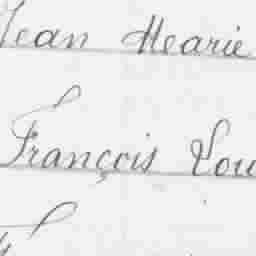 Jean Marie
François Lou